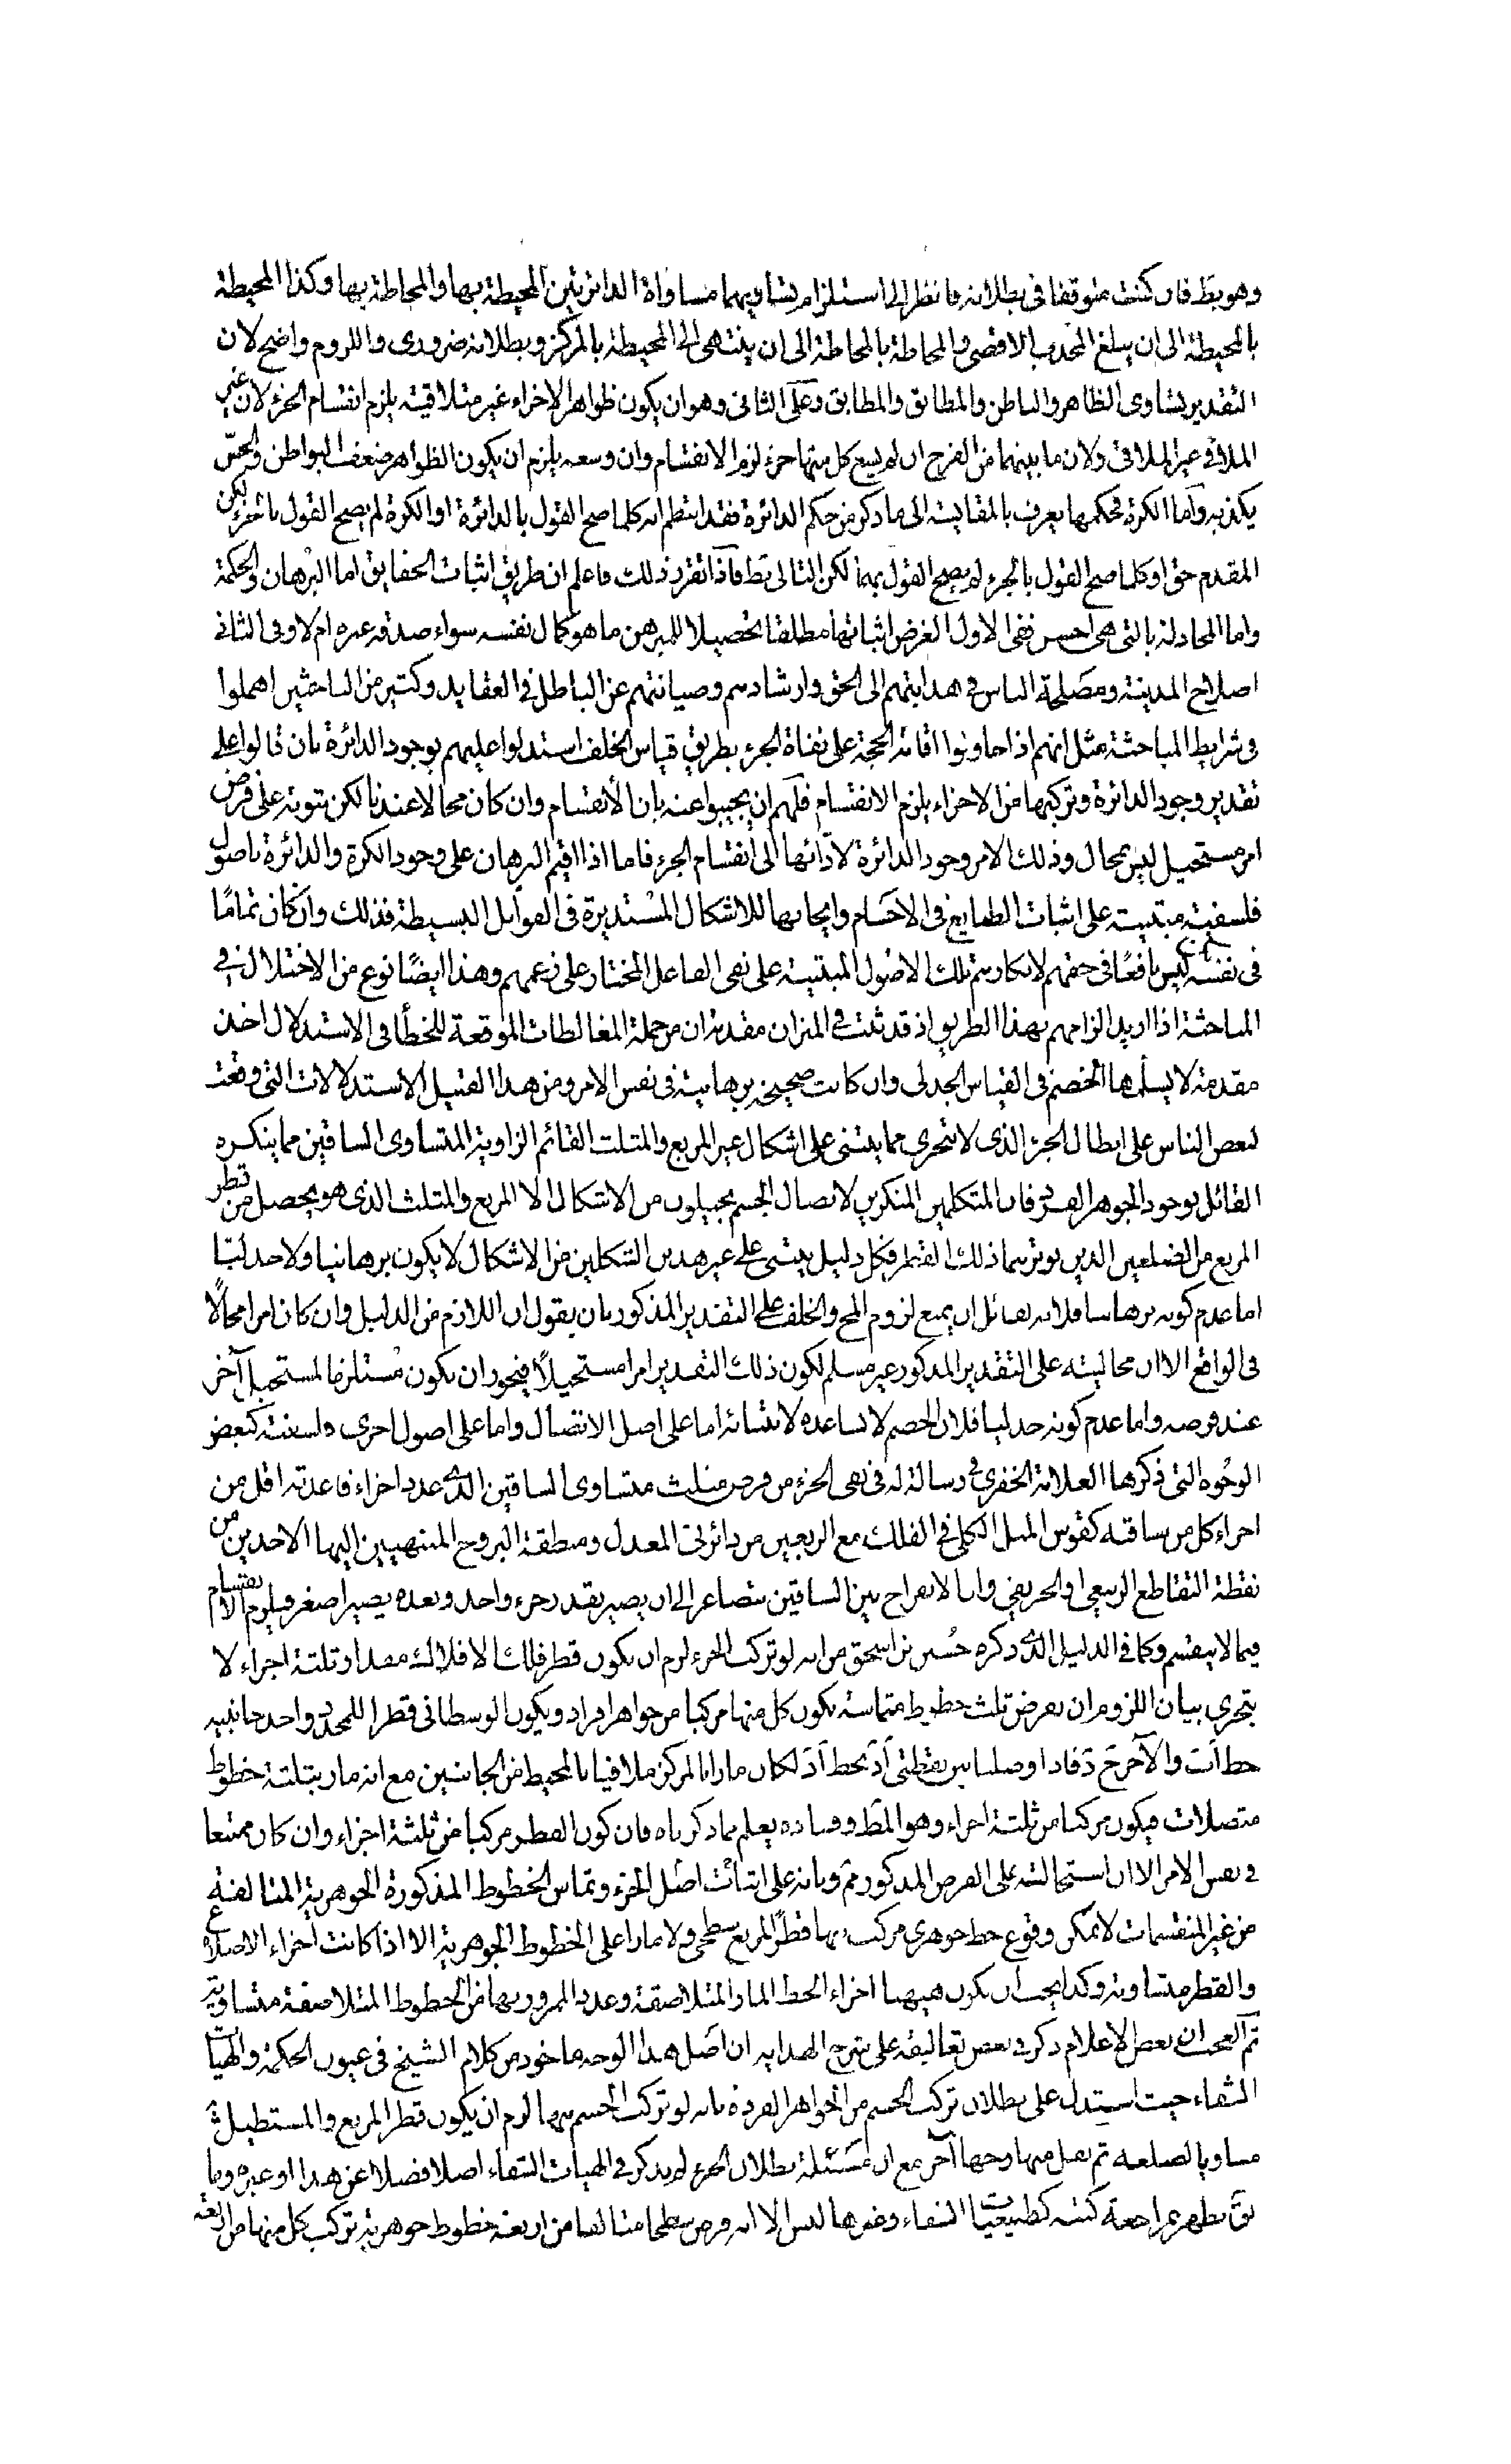 وهو بط فان كنت متوقفا فى بطلانه فانظر الى استلزام تساويهما مساواة الدائرتين المحيطة بها والمحاطة بها وكذا المحيطة
بالمحيطة الى ان يبلغ المحدب الاقصى والمحاطة بالمحاطة الى ان ينتهى الى المحيطة بالمركز وبطلانه ضرورى واللزوم واضح لان
التقدير تساوى الظاهر والباطن والمطابق والمطابق وعلى الثانى وهو ان يكون ظواهر الاجزاء غير متلاقية يلزم انقسام الجزء لان غير
الملاقى غير الملاقى ولان ما بينهما من الفرج ان لم يسع كل منها جزء لزم الانقسام وان وسعه يلزم ان يكون الظواهر ضعف البواطن والحس
يكذبه وأما الكرة فحكمها يعرف بالمقايسة الى ما ذكر من حكم الدائرة فقد انتظم انه كلما صح القول بالدائرة او الكرة لم يصح القول بالجزء لكن
المقدم حق او كلما صح القول بالجزء لم يصح القول بهما لكن التالى بط فاذا تقرر ذلك فاعلم ان طريق اثبات الحقايق اما البرهان والحكمة
واما المجادلة بالتى هى احسن ففى الاول الغرض اثباتها مطلقا تحصيلا للمبرهن ما هو كمال نفسه سواء صدقه غيره ام لا وفى الثانى
اصلاح المدينة ومصلحة الناس فى هدايتهم الى الحق وارشادهم وصيانتهم عن الباطل فى العقايد وكثير من الباحثين اهملوا
فى شرايط المباحثة مثل انهم اذا حاولوا اقامة الحجة على نفاة الجزء بطريق قياس الخلف استدلوا عليهم بوجود الدائرة بان قالوا على
تقدير وجود الدائرة وتركبها من الاجزاء يلزم الانقسام فلهم ان يجيبوا عنه بان الأنقسام وان كان محالا عندنا لكن ثبوته على فرض
امر مستحيل ليس بمحال وذلك الامر وجود الدائرة لادّائها الى انقسام الجزء فاما اذا اقيم البرهان على وجود الكرة والدائرة باصول
فلسفية مبتنية على اثبات الطبايع فى الاجسام وايجابها للاشكال المستديرة فى القوابل البسيطة فذلك وان كان تمامًا
فى نفسه لكن ليس نافعًا فى حقهم لانكارهم تلك الاصول المبتنية على نفى الفاعل المختار على زعمهم وهذا ايضًا نوع من الاختلال فى
المباحثة اذا اريد الزامهم بهذا الطريق اذ قد ثبت فى الميزان مقدمة ان من جملة المغالطات الموقعة للخطأ فى الاستدلال اخذ
مقدمة لا يسلمها الخصم فى القياس الجدلى وان كانت صحيحة برهانية فى نفس الامر ومن هذا القبيل الاستدلالات التى وقعت
لبعض الناس على ابطال الجزء الذى لا يتجزى مما يبتنى على اشكال غير المربع والمثلث القائم الزاوية المتساوى الساقين مما ينكره
القائل بوجود الجوهر الفرد فان المتكلمين المنكرين لاتصال الجسم يحيلون من الاشكال الا المربع والمثلث الذى هو يحصل من قطر
المربع من الضلعين الذين يوترهما ذلك القطر فكل دليل يبتنى على غير هذين الشكلين من الاشكال لا يكون برهانيا ولا جدليّا
اما عدم كونه برهانيا فلانه لقائل ان يمنع لزوم المح والخلف على التقدير المذكور بان يقول ان اللازم من الدليل وان كان امرا محالًا
فى الواقع الا ان محاليته على التقدير المذكور غير مسلم لكون ذلك التقدير امرا مستحيلًا فيجوز ان يكون مستلزما لمستحيل آخر
عند فرضه واما عدم كونه جدليا فلان الخصم لا يساعده لابتنائه اما على اصل الاتصال واما على اصول اخرى فلسفية كبعض
الوجوه التى ذكرها العلامة الخفرى فى رسالة له فى نفى الجزء من فرض مثلث متساوى الساقين الذى عدد اجزاء قاعدته اقل من
اجزاء كل من ساقيه كقوس الميل الكلى فى الفلك مع الربعين من دائرتى المعدل ومنطقة البروج المنتهيين اليها الاخذين من
نقطة التقاطع الربيعى او الخريفى وان الانفراج بين الساقين يتصاغر الى ان يصير بقدر جزء واحد وبعده يصير اصغر فيلزم الانقسام
فيما لا ينقسم وكما فى الدليل الذى ذكره حسين بن اسحق من انه لو تركب الجزء لزم ان يكون قطر فلك الافلاك مقدار ثلثة اجزاء لا
يتجزى بيان اللزوم ان نفرض ثلث خطوط متماسة يكون كل منها مركبا من جواهر افراد ويكون الوسطانى قطرا للمحدد واحد جانبيه
خط اَبَ والآخر جَ دَ فاذا وصلنا بين نقطتى اَدَ بخط اَدَ لكان مارا بالمركز ملاقيا بالمحيط من الجانبين مع انه مار بثلثة خطوط
متصلات فيكون مركبا من ثلثة اجزاء وهو المط وفساده يعلم بما ذكرناه فان كون القطر مركبا من ثلثة اجزاء وان كان ممتنعا
فى نفس الامر الا ان استحالته على الفرض المذكور مم وبانه على اثبات اصل الجزء وتماس الخطوط المذكورة الجوهرية المتالفة
من غير المنقسمات لا يمكن وقوع خط جوهرى مركب بها قطرًا لمربع سطحى ولا مارا على الخطوط الجوهرية الا اذا كانت اجزاء الاضلاع
والقطر متساوية وكذا يجب ان يكون هيهنا اجزاء الخط المار المتلاصقة وعدد المرور بها من الخطوط المتلاصقة متساوية
ثم العجب ان بعض الاعلام ذكر فى بعض تعاليقه على شرح الهداية ان اصل هذا الوجه ماخوذ من كلام الشيخ فى عيون الحكمة والهيات
الشفاء حيث استدل على بطلان تركب الجسم من الجواهر الفردة بانه لو تركب الجسم منها لزم ان يكون قطر المربع والمستطيل
مساويا لضلعه ثم نقل منها وجها آخر مع ان مسئلة بطلان الجزء لم يذكر فى الهيات الشفاء اصلا فضلا عن هذا او غيره وما
نقل يظهر بمراجعة كتبه كطبيعيات الشفاء وغيرها ليس الا انه فرض سطحا متالفا من اربعة خطوط جوهرية تركب كل منها من اربعة